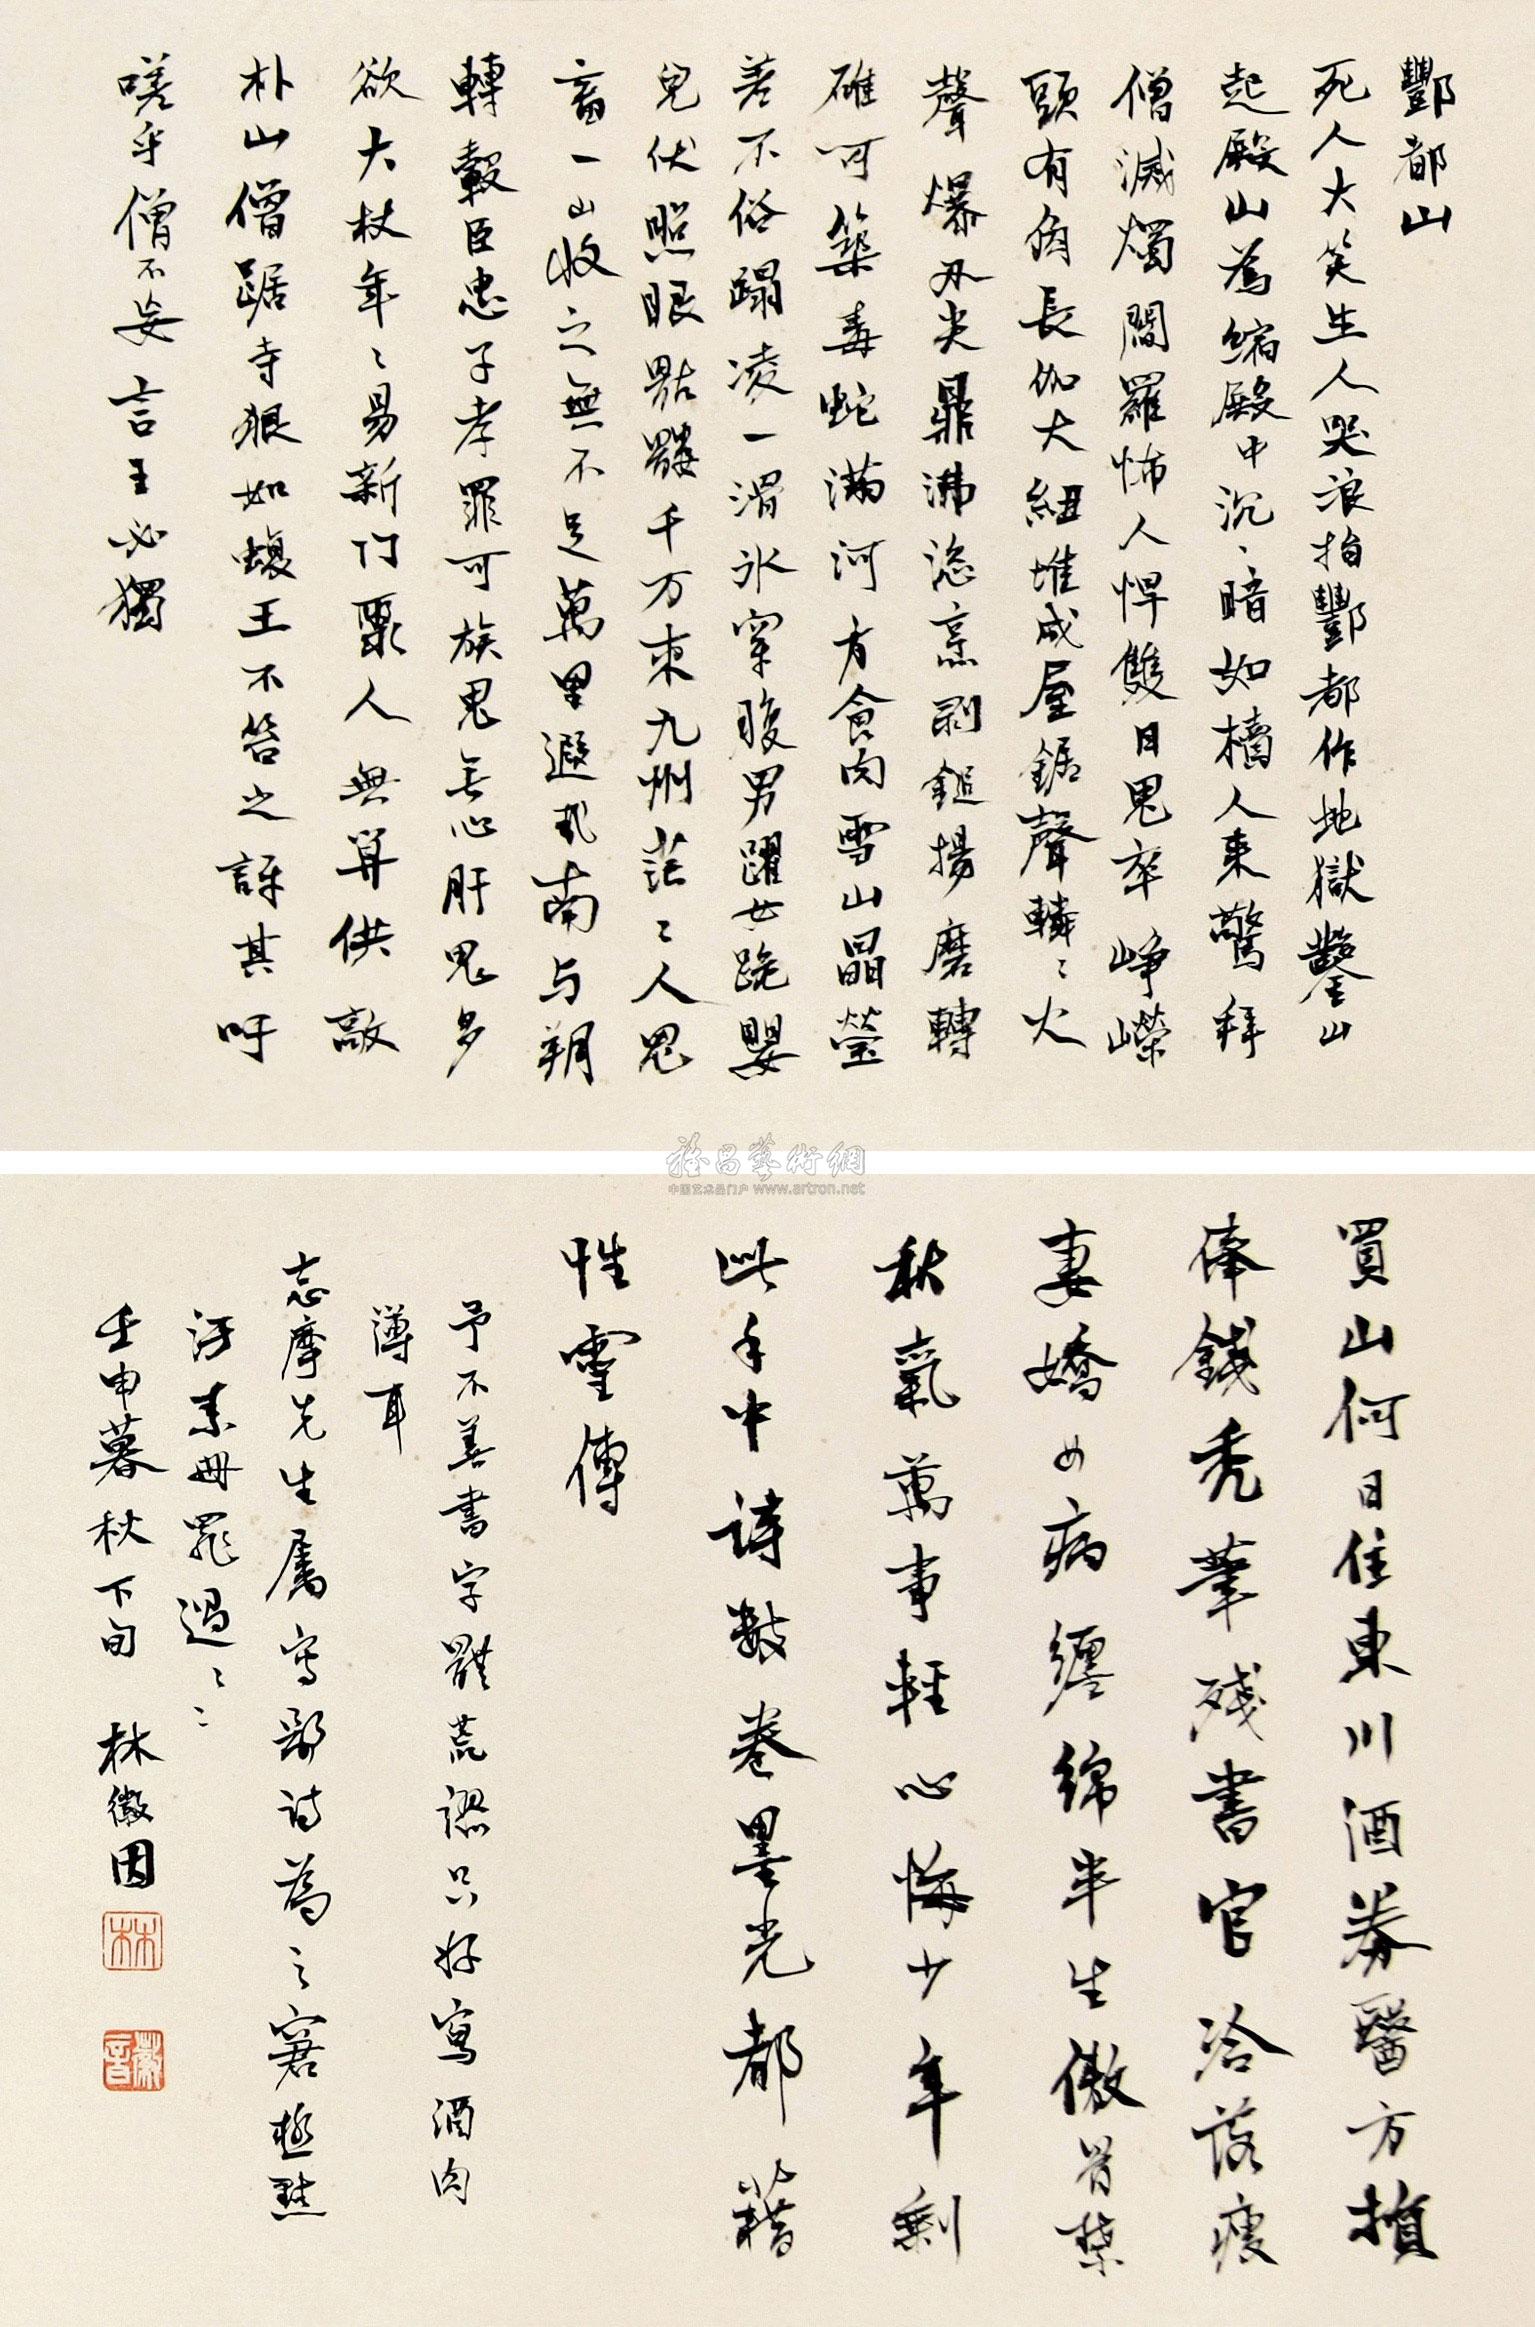 酆都山
死人大笑生人哭浪抬酆都作地獄鑿山
起殿山為縮殿中沉、暗如檣人來驚拜
僧滅燭閻羅怖人悍雙目鬼卒崢嶸
頭有角長伽大紐堆成屋鋸聲轔〻火
聲爆刃尖鼎沸泌烹剮鎚揚磨轉
碓可築毒蛇滿河方食肉雪山晶瑩
若不俗蹋凌一滑氷穿腹男躍女跪嬰
兒伏照眼骷髏千万束九州茫〻人鬼
畜一山收之無不足萬里遐氓南与朔
轉轂臣忠子孝罪可族鬼無心肝鬼多
欲大杖年〻易新門票人無算供敲
朴山僧踞寺狠如蝮王不答之訝其
嗟乎僧不妄言王必獨
買山何日住東川酒券醫方
俸錢禿筆殘書官冷落瘦
妻嬌女病纏綿半生傲骨禁
秋氣萬事輕心悔少年剩
此手中詩數卷墨光都藉
性靈傳
予不善書字體荒謬只好寫酒肉
簿耳
志摩先生屬寫部詩為之窘極默
污素冊罪過〻〻
壬申暮秋下旬 林徽因
林
徽音
雅昌藝術網
中国艺术品门户 www.artron.net